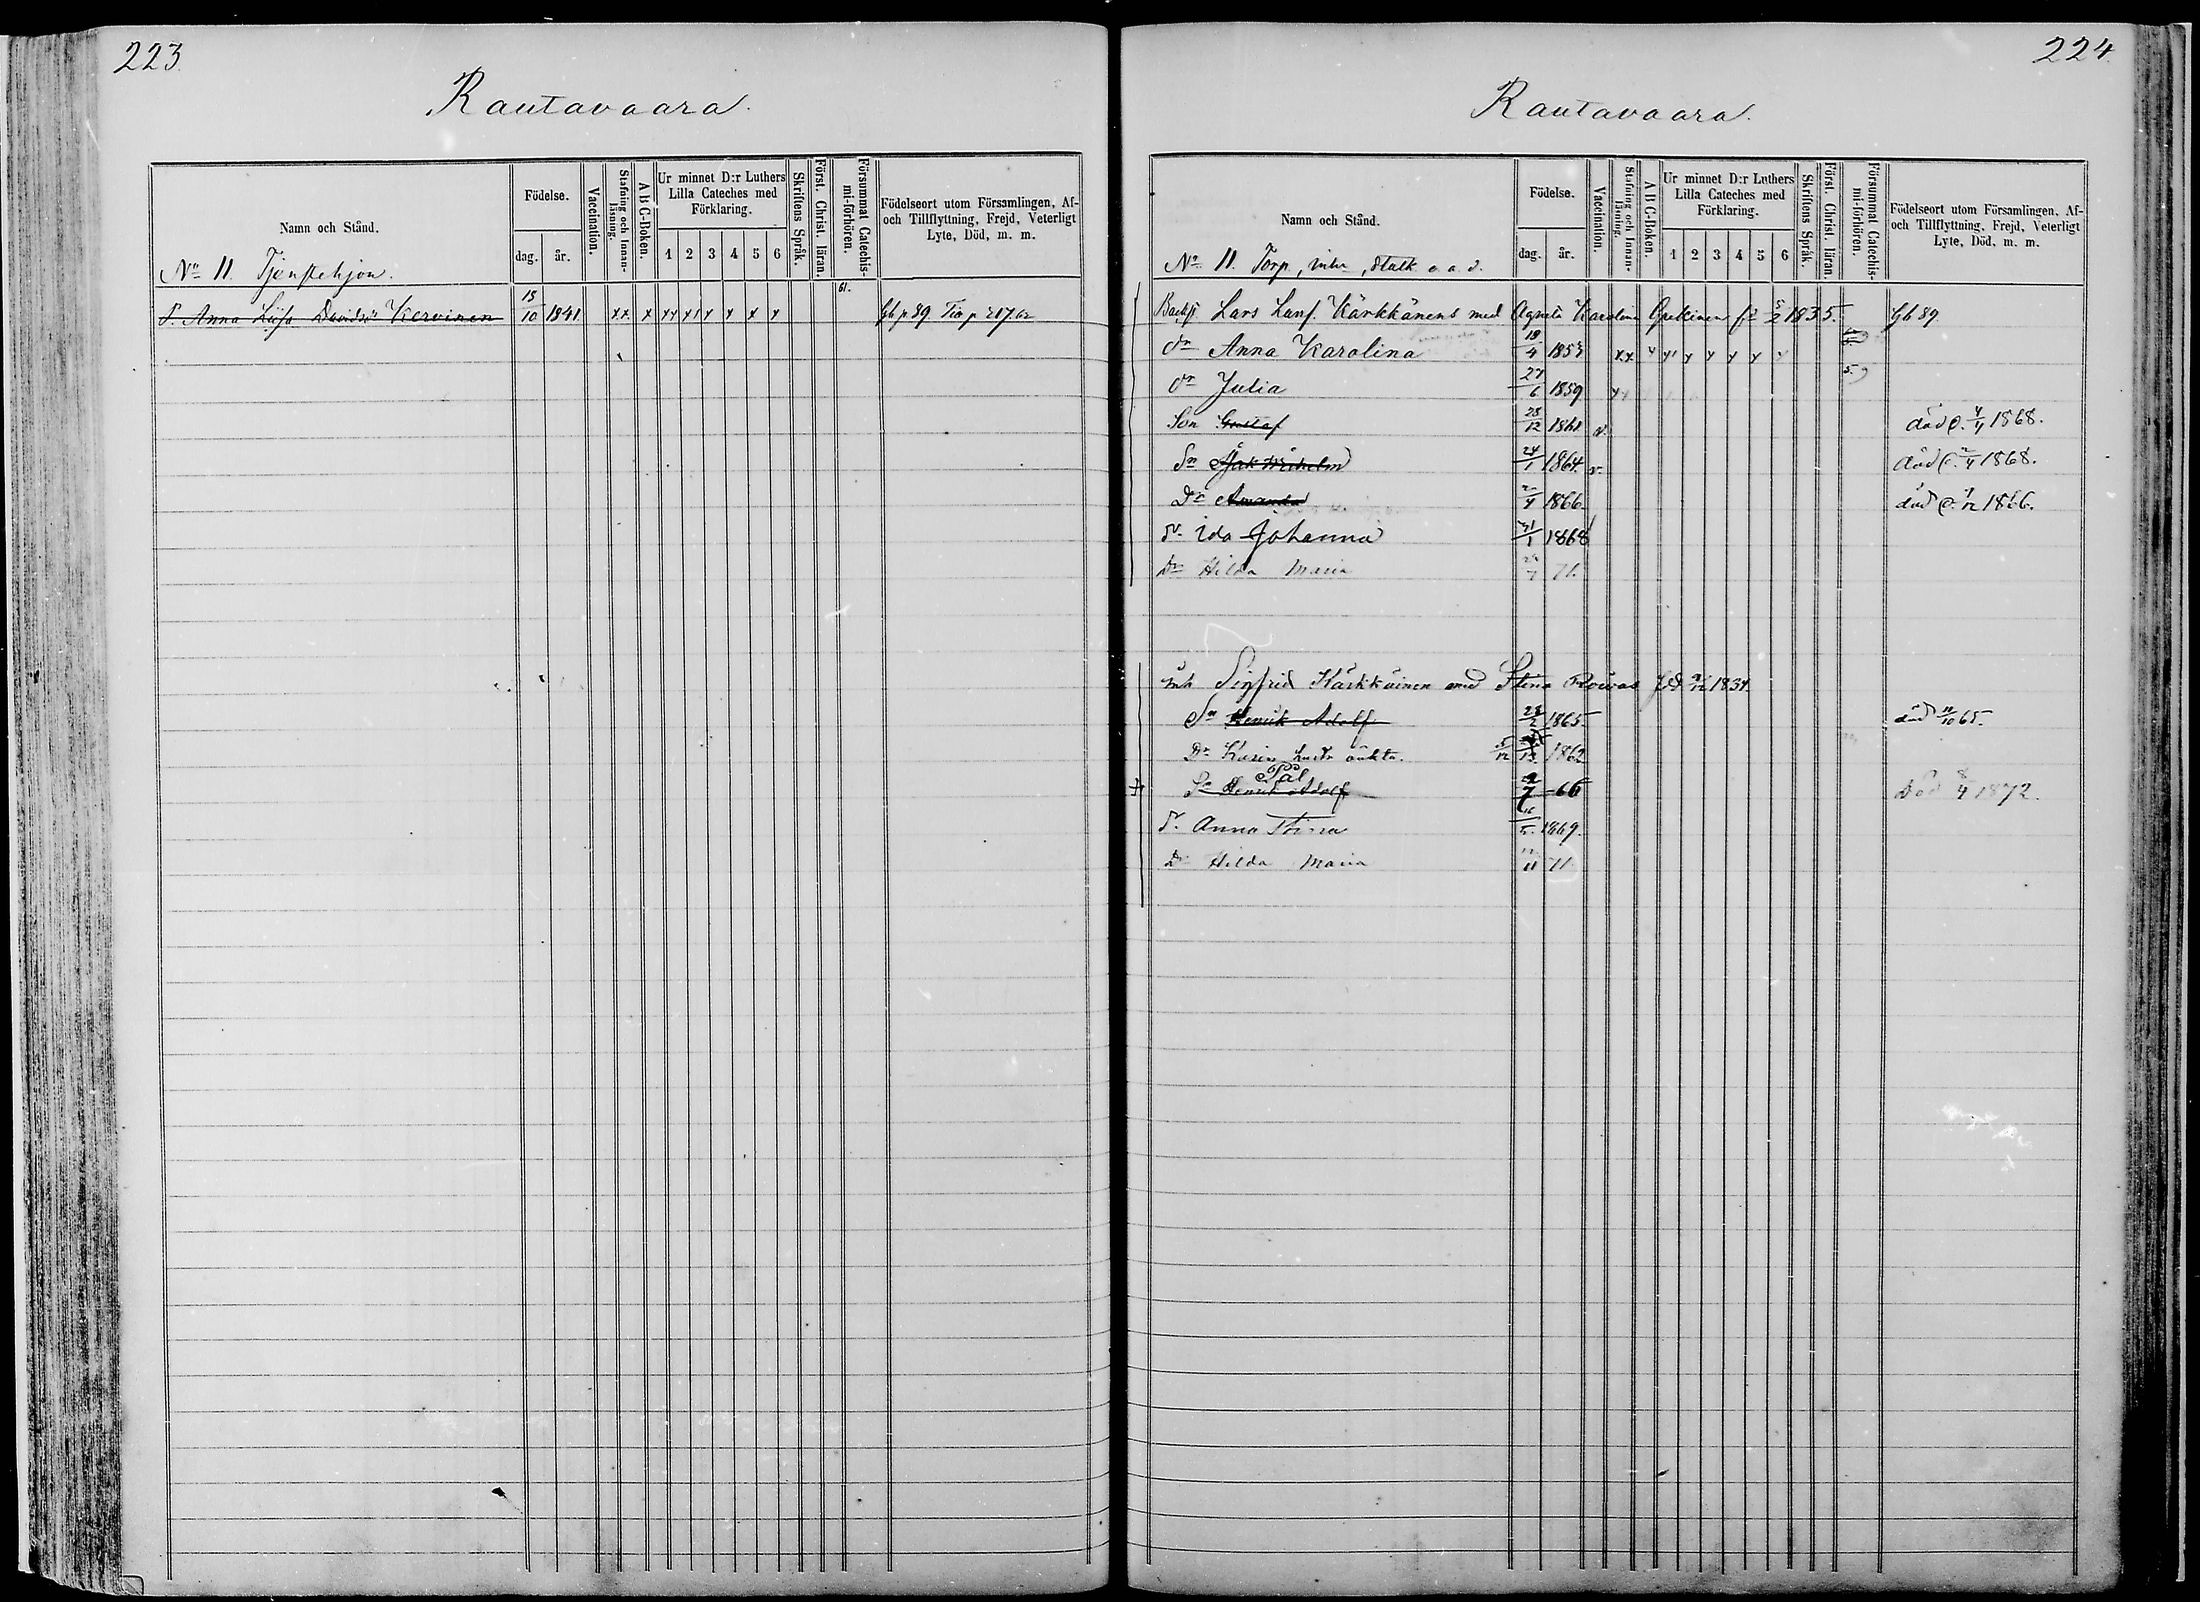 223.
Rautavaara.
Namn och Stånd.
Födelse.
dag. år.
Vaccination.
Stafning och Innanläsning.
A B C-Boken.
Ur minnet D:r Luthers Lilla Cateches med Förklaring.
1 2 3 4 5 6
Skriftens Språk.
Först. Christ. läran.
Försummat Catechismi-förhören.
Födelseort utom Församlingen, Af- och Tillflyttning, Frejd, Veterligt Lyte, Död, m. m.
No 11. Tjenstehjon.
P. Anna Liisa Davidsdr Kervinen 15/10 1841 xx x xx x x x x x 61. Gb p 89. p 217
224.
Rautavaara.
Namn och Stånd.
Födelse.
dag. år.
Vaccination.
Stafning och Innanläsning.
A B C-Boken.
Ur minnet D:r Luthers Lilla Cateches med Förklaring.
1 2 3 4 5 6
Skriftens Språk.
Först. Christ. läran.
Försummat Catechismi-förhören.
Födelseort utom Församlingen, Af- och Tillflyttning, Frejd, Veterligt Lyte, Död, m. m.
No 11. Torp, inhr, Statk o. a. d.
Lars Kärkkänens med Agneta Karolina 5/2 1835. Gb 89.
dr Anna Karolina 18/4 1853
dr Julia 27/6 1859
Son Gustaf 28/12 1861 v. död 4/4 1868.
Sn Wilhelm 24/1 1864 v. död 1868.
Dr Amanda 1866 död 1866.
dr Ida Johanna 31/1 1868
Dr Hilda Maria 71.
inh Sigfrid Kärkkäinen med Stina 1834
Sn Henrik Adolf 28/2 1865 död 11/10 65.
Dr Karin 5/12 1862
Pål
Sn Henrik Adolf 2/7 -66 Död 8/4 1872.
dr Anna Stina 1869.
Dr Hilda Maria 71